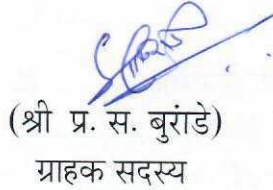 (श्री प्र. स. बुरांडे)
ग्राहक सदस्य